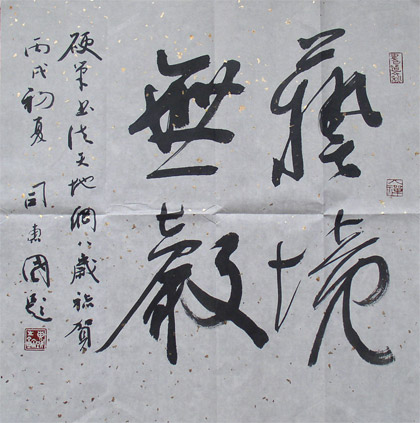 藝境
無
硬筆書法天地網八歲誌賀
丙戌初夏 司惠國題